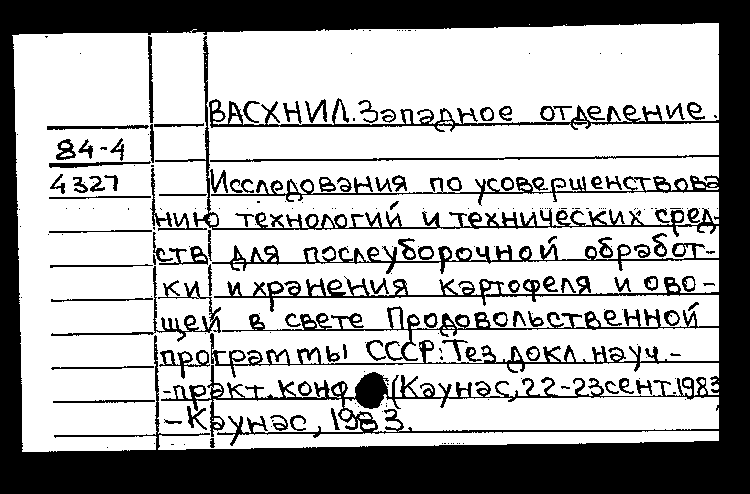 ВАСХНИЛ. Западное отделение.
84-4
4327
Исследования по усовершенствова
нию технологий и технических сред-
ств для послеуборочной обработ-
ки и хранения картофеля и ово-
щей в свете Продовольственной
программы СССР: Тез. докл. науч.-
-практ. конф. (Каунас, 22-23 сент. 1983
-Каунас, 1983.